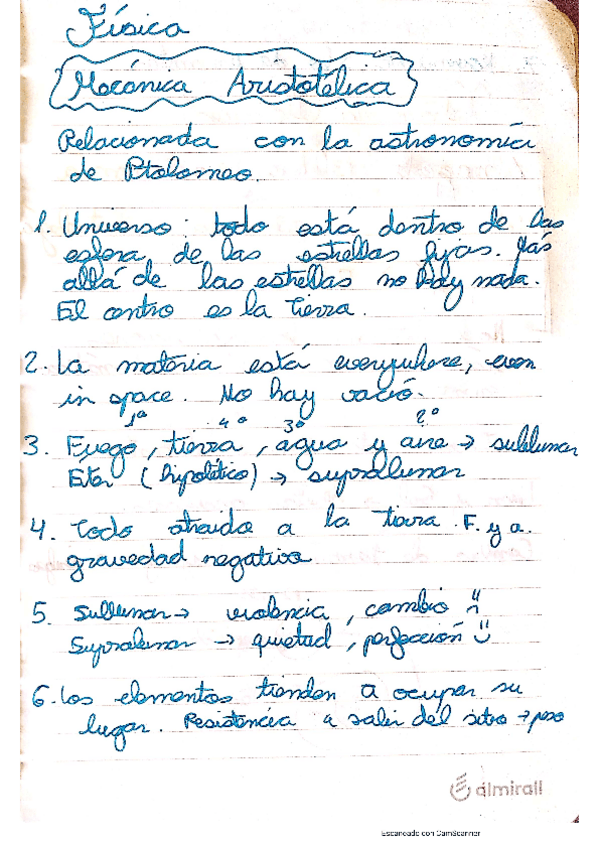 Física
Mecánica Aristotélica
Relacionada con la astronomía
de Ptolomeo.
1. Universo: todo está dentro de las
esfera de las estrellas fijas. Más
allá de las estrellas no hay nada.
El centro es la Tierra.
2. La materia está everywhere, even
in space. No hay vació.
1ª 4º 3º 2º
3. Fuego, tierra, agua y aire → sublunar
Eter (hipotético) → supralunar
4. Todo atraido a la tierra. F. y a.
gravedad negativa
5. Sublunar → violencia, cambio
Supralunar → quietud, perfección
6. Los elementos tienden a ocupar su
lugar. Resistencia a salir del sitio → peso
almirall
Escaneado con CamScanner